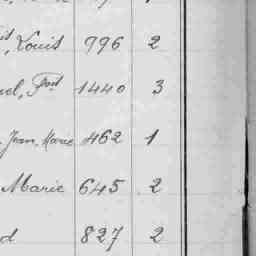 Louis 796 2
1440 3
Jean Marie 462 1
Marie 645 2
d 827 2